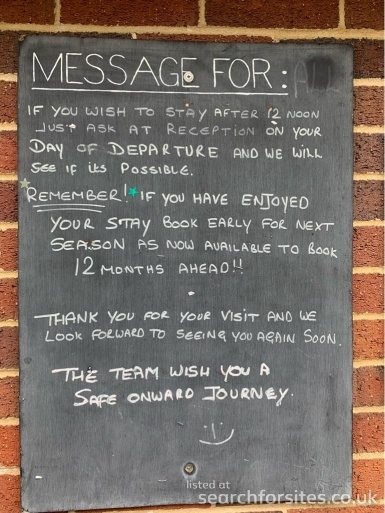 MESSAGE FOR: ALL
IF YOU WISH TO STAY AFTER 12 NOON
JUST ASK AT RECEPTION ON YOUR
DAY OF DEPARTURE AND WE WILL
SEE IF ITS POSSIBLE.
REMEMBER! IF YOU HAVE ENJOYED
YOUR STAY BOOK EARLY FOR NEXT
SEASON AS NOW AVAILABLE TO BOOK
12 MONTHS AHEAD!!
THANK YOU FOR YOUR VISIT AND WE
LOOK FORWARD TO SEEING YOU AGAIN SOON.
THE TEAM WISH YOU A
SAFE ONWARD JOURNEY.
:)
listed at
searchforsites.co.uk